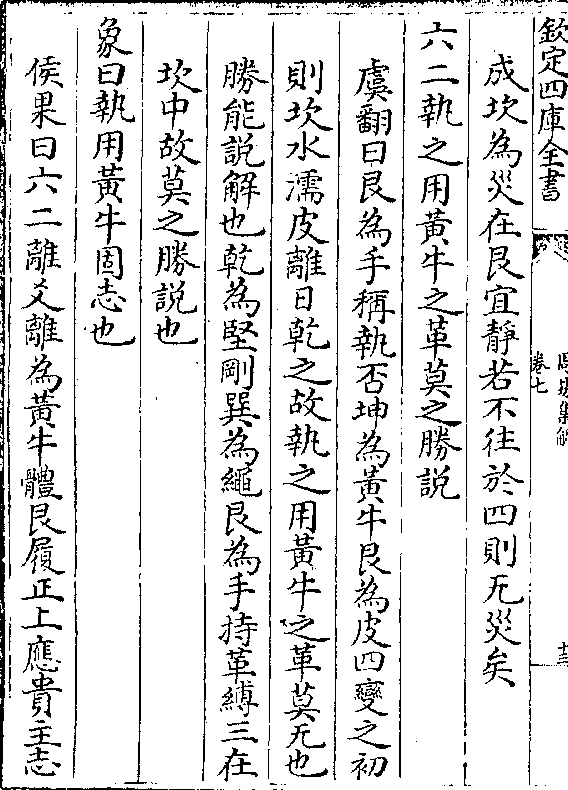 欽定四庫全書
周易集解
卷七
十三
成坎為災在艮宜靜若不往於四則无災矣
六二執之用黃牛之革莫之勝説
虞翻曰艮為手稱執否坤為黃牛艮為皮四變之初
則坎水濡皮離日乾之故執之用黃牛之革莫无也
勝能説解也乾為堅剛巽為繩艮為手持革縛三在
坎中故莫之勝説也
象曰執用黃牛固志也
侯果曰六二離爻離為黃牛體艮履正上應貴主志